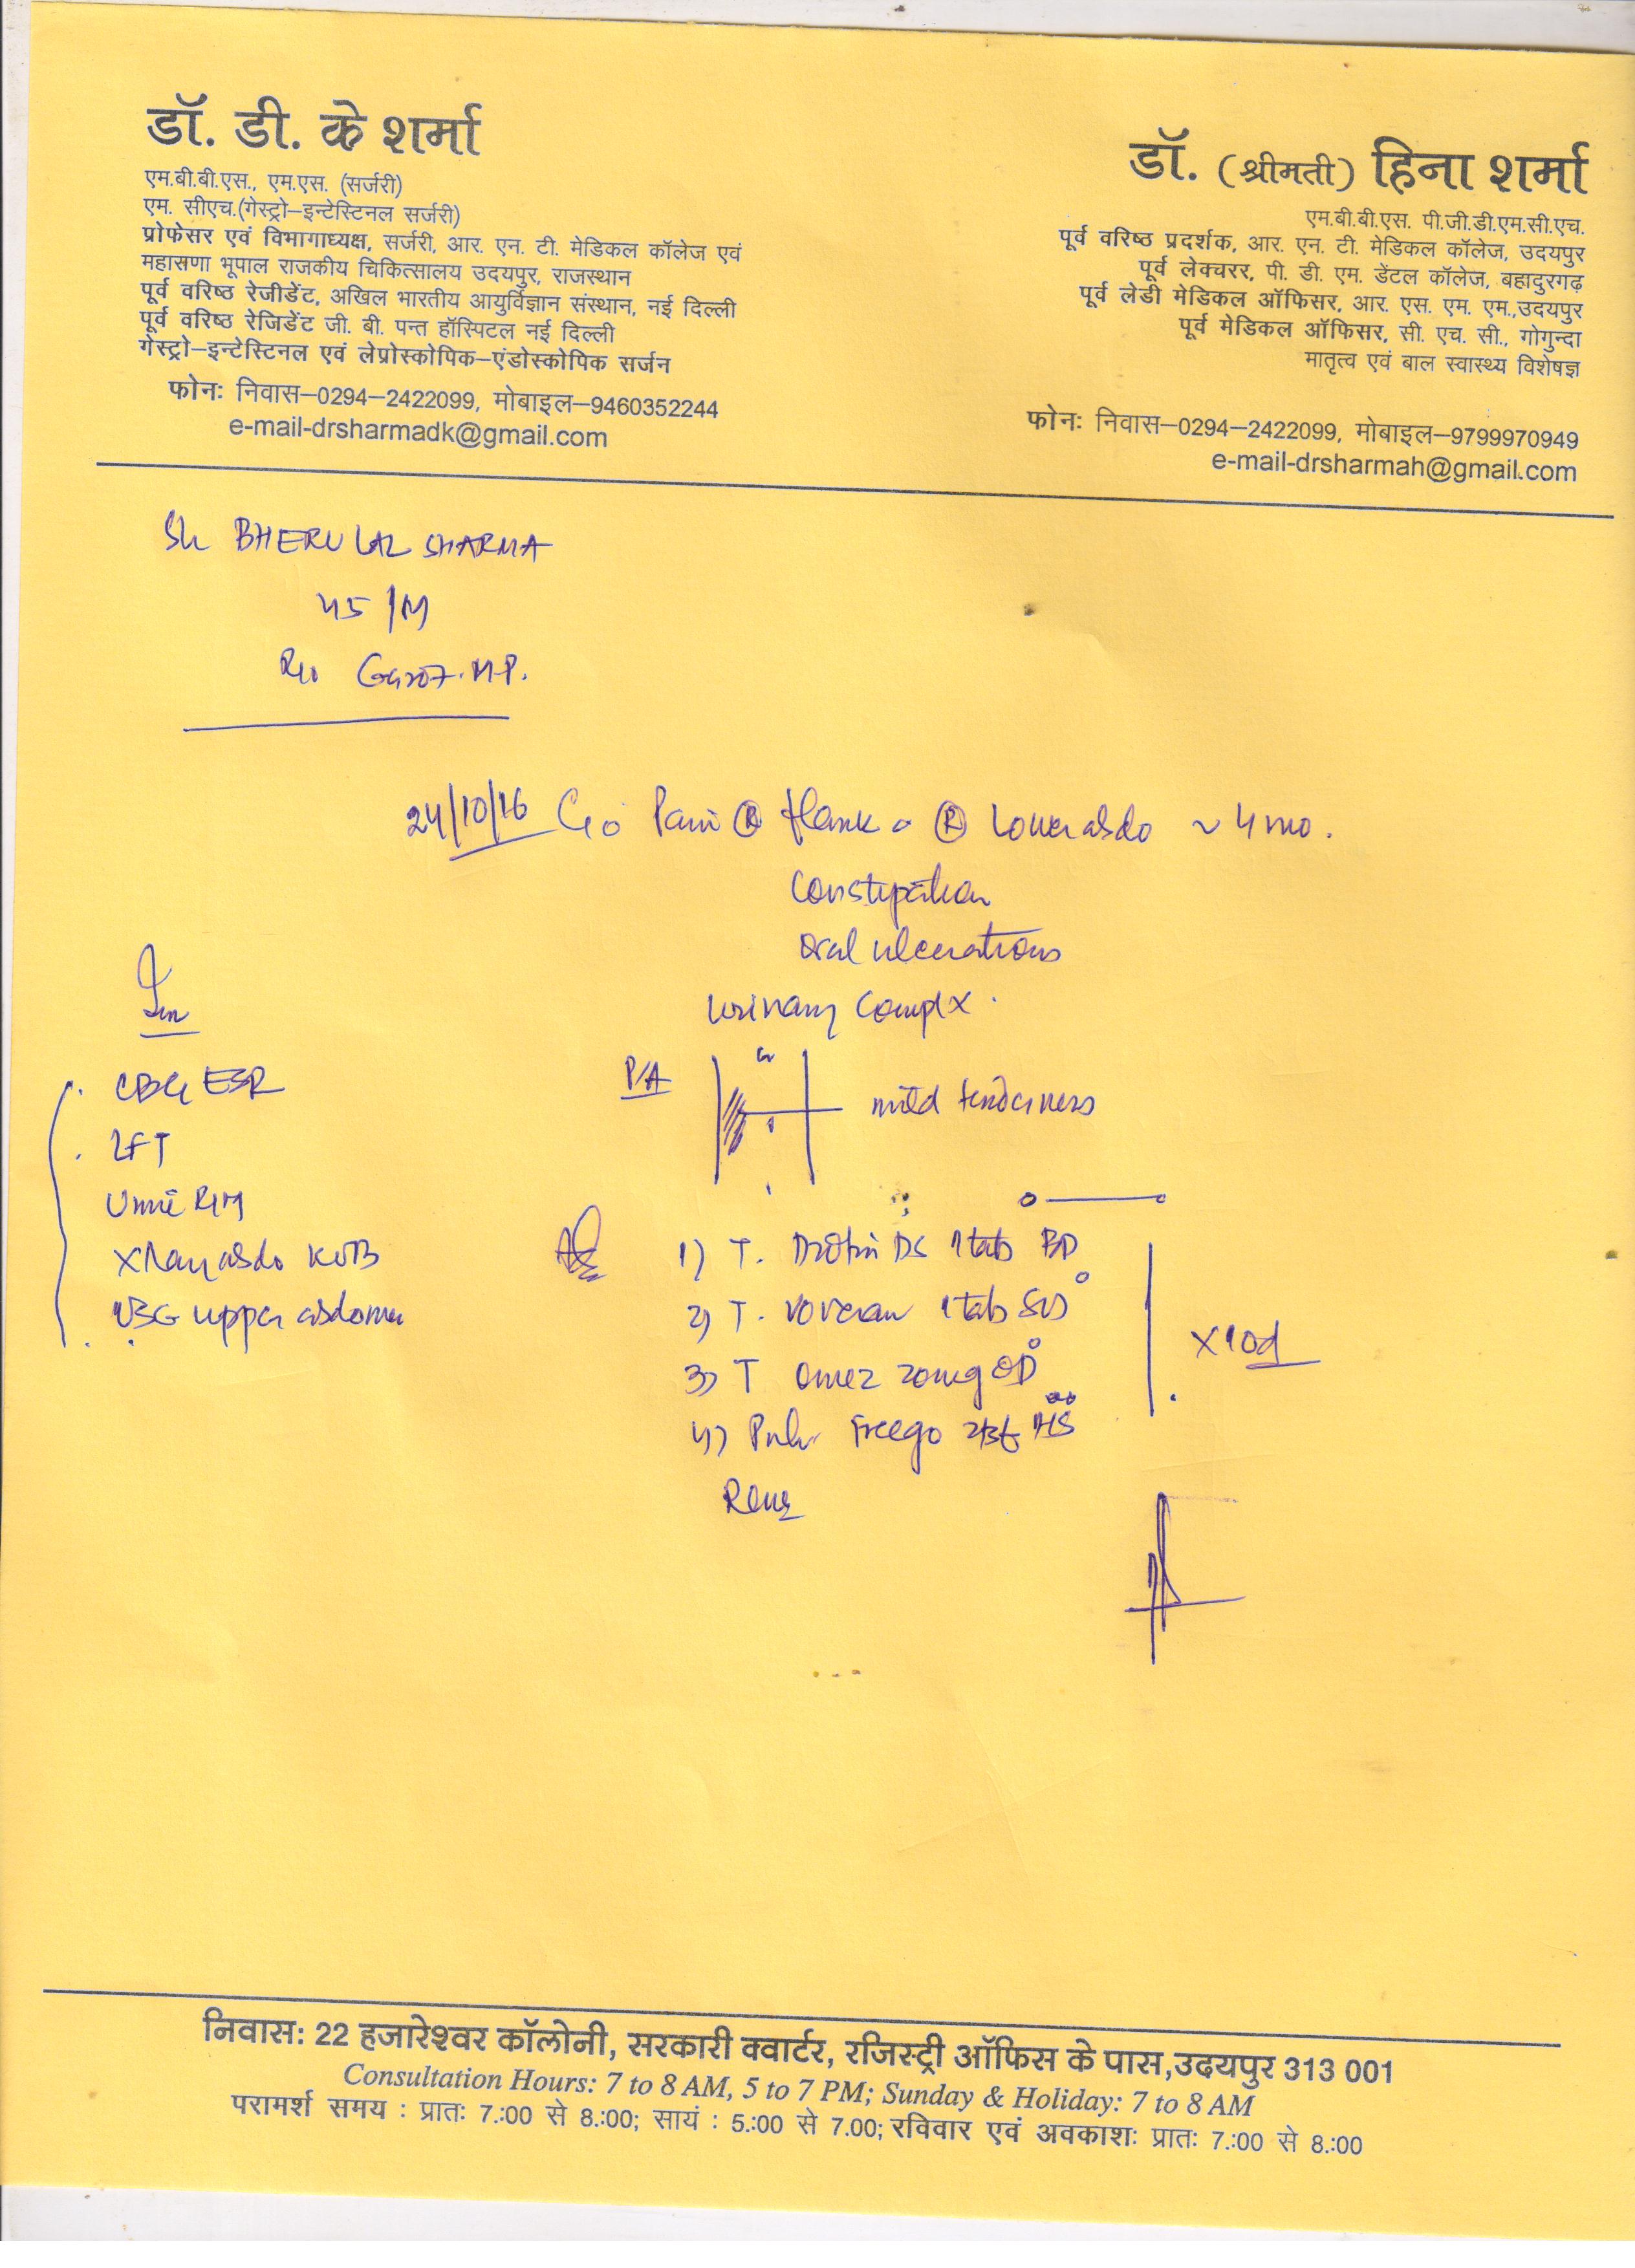 डॉ. डी. के शर्मा
एम.बी.बी.एस., एम.एस. (सर्जरी)
एम. सीएच.(गेस्ट्रो–इन्टेस्टिनल सर्जरी)
प्रोफेसर एवं विभागाध्यक्ष, सर्जरी, आर. एन. टी. मेडिकल कॉलेज एवं
महासणा भूपाल राजकीय चिकित्सालय उदयपुर, राजस्थान
पूर्व वरिष्ठ रेजीडेंट, अखिल भारतीय आयुर्विज्ञान संस्थान, नई दिल्ली
पूर्व वरिष्ठ रेजिडेंट जी. बी. पन्त हॉस्पिटल नई दिल्ली
गेस्ट्रो–इन्टेस्टिनल एवं लेप्रोस्कोपिक–एंडोस्कोपिक सर्जन
फोनः निवास–0294–2422099, मोबाइल–9460352244
e-mail-drsharmadk@gmail.com
डॉ. (श्रीमती) हिना शर्मा
एम.बी.बी.एस. पी.जी.डी.एम.सी.एच.
पूर्व वरिष्ठ प्रदर्शक, आर. एन. टी. मेडिकल कॉलेज, उदयपुर
पूर्व लेक्चरर, पी. डी. एम. डेंटल कॉलेज, बहादुरगढ़
पूर्व लेडी मेडिकल ऑफिसर, आर. एस. एम. एम.,उदयपुर
पूर्व मेडिकल ऑफिसर, सी. एच. सी., गोगुन्दा
मातृत्व एवं बाल स्वास्थ्य विशेषज्ञ
फोनः निवास–0294–2422099, मोबाइल–9799970949
e-mail-drsharmah@gmail.com
Sh BHERU LAL SHARMA
45/M
M.P.
24/10/16 C/o Pain Ⓡ flank Ⓡ Lower abdo ~ 4 mo.
Constipation
oral ulcerations
Urinary Comp x
P/A mild tenderness
Inv
CBC ESR
LFT
Urine R/M
X Ray abdo KUB
USG upper abdomen
1) T. Drotin DS 1 tab BD
2) T. Voveran 1 tab SOS
3) T Omez 20mg OD
4) Pulv Freego HS
x 10d
निवासः 22 हजारेश्वर कॉलोनी, सरकारी क्वार्टर, रजिस्ट्री ऑफिस के पास,उदयपुर 313 001
Consultation Hours: 7 to 8 AM, 5 to 7 PM; Sunday & Holiday: 7 to 8 AM
परामर्श समय : प्रातः 7.:00 से 8.:00; सायं : 5.:00 से 7.00; रविवार एवं अवकाशः प्रातः 7.:00 से 8.:00